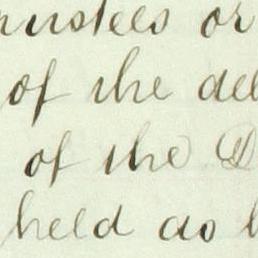 trustees or
of the de
of the D
held as